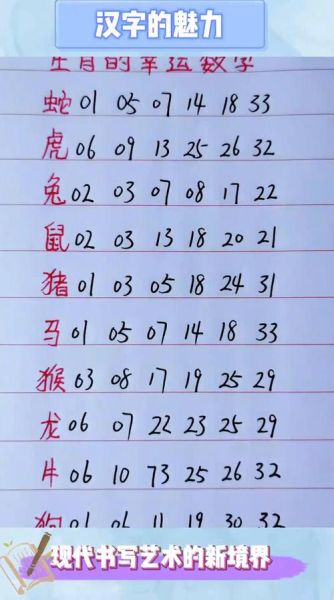 汉字的魅力
生肖的幸运数字
蛇 01 05 07 14 18 33
虎 06 09 13 25 26 32
兔 02 03 07 08 17 22
鼠 02 03 13 18 20 21
猪 01 03 05 18 24 31
马 01 05 07 14 18 33
猴 03 08 17 19 25 29
龙 06 07 22 23 25 29
牛 06 10 73 25 26 32
狗 01 06 11 19 30 32
现代书写艺术的新境界